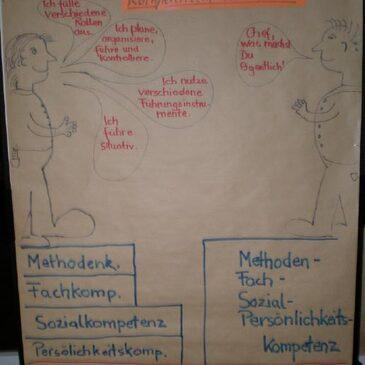 Ich fülle
verschiedene
Rollen
aus.
Ich plane,
organisiere,
führe und
kontrolliere.
Ich nutze
verschiedene
Führungsinstru-
mente.
Ich
führe
situativ.
Chef,
was machst
Du
eigentlich!
Methodenk.
Fachkomp.
Sozialkompetenz
Persölichkeitskomp.
Methoden-
Fach-
Sozial-
Persönlichkeits-
Kompetenz